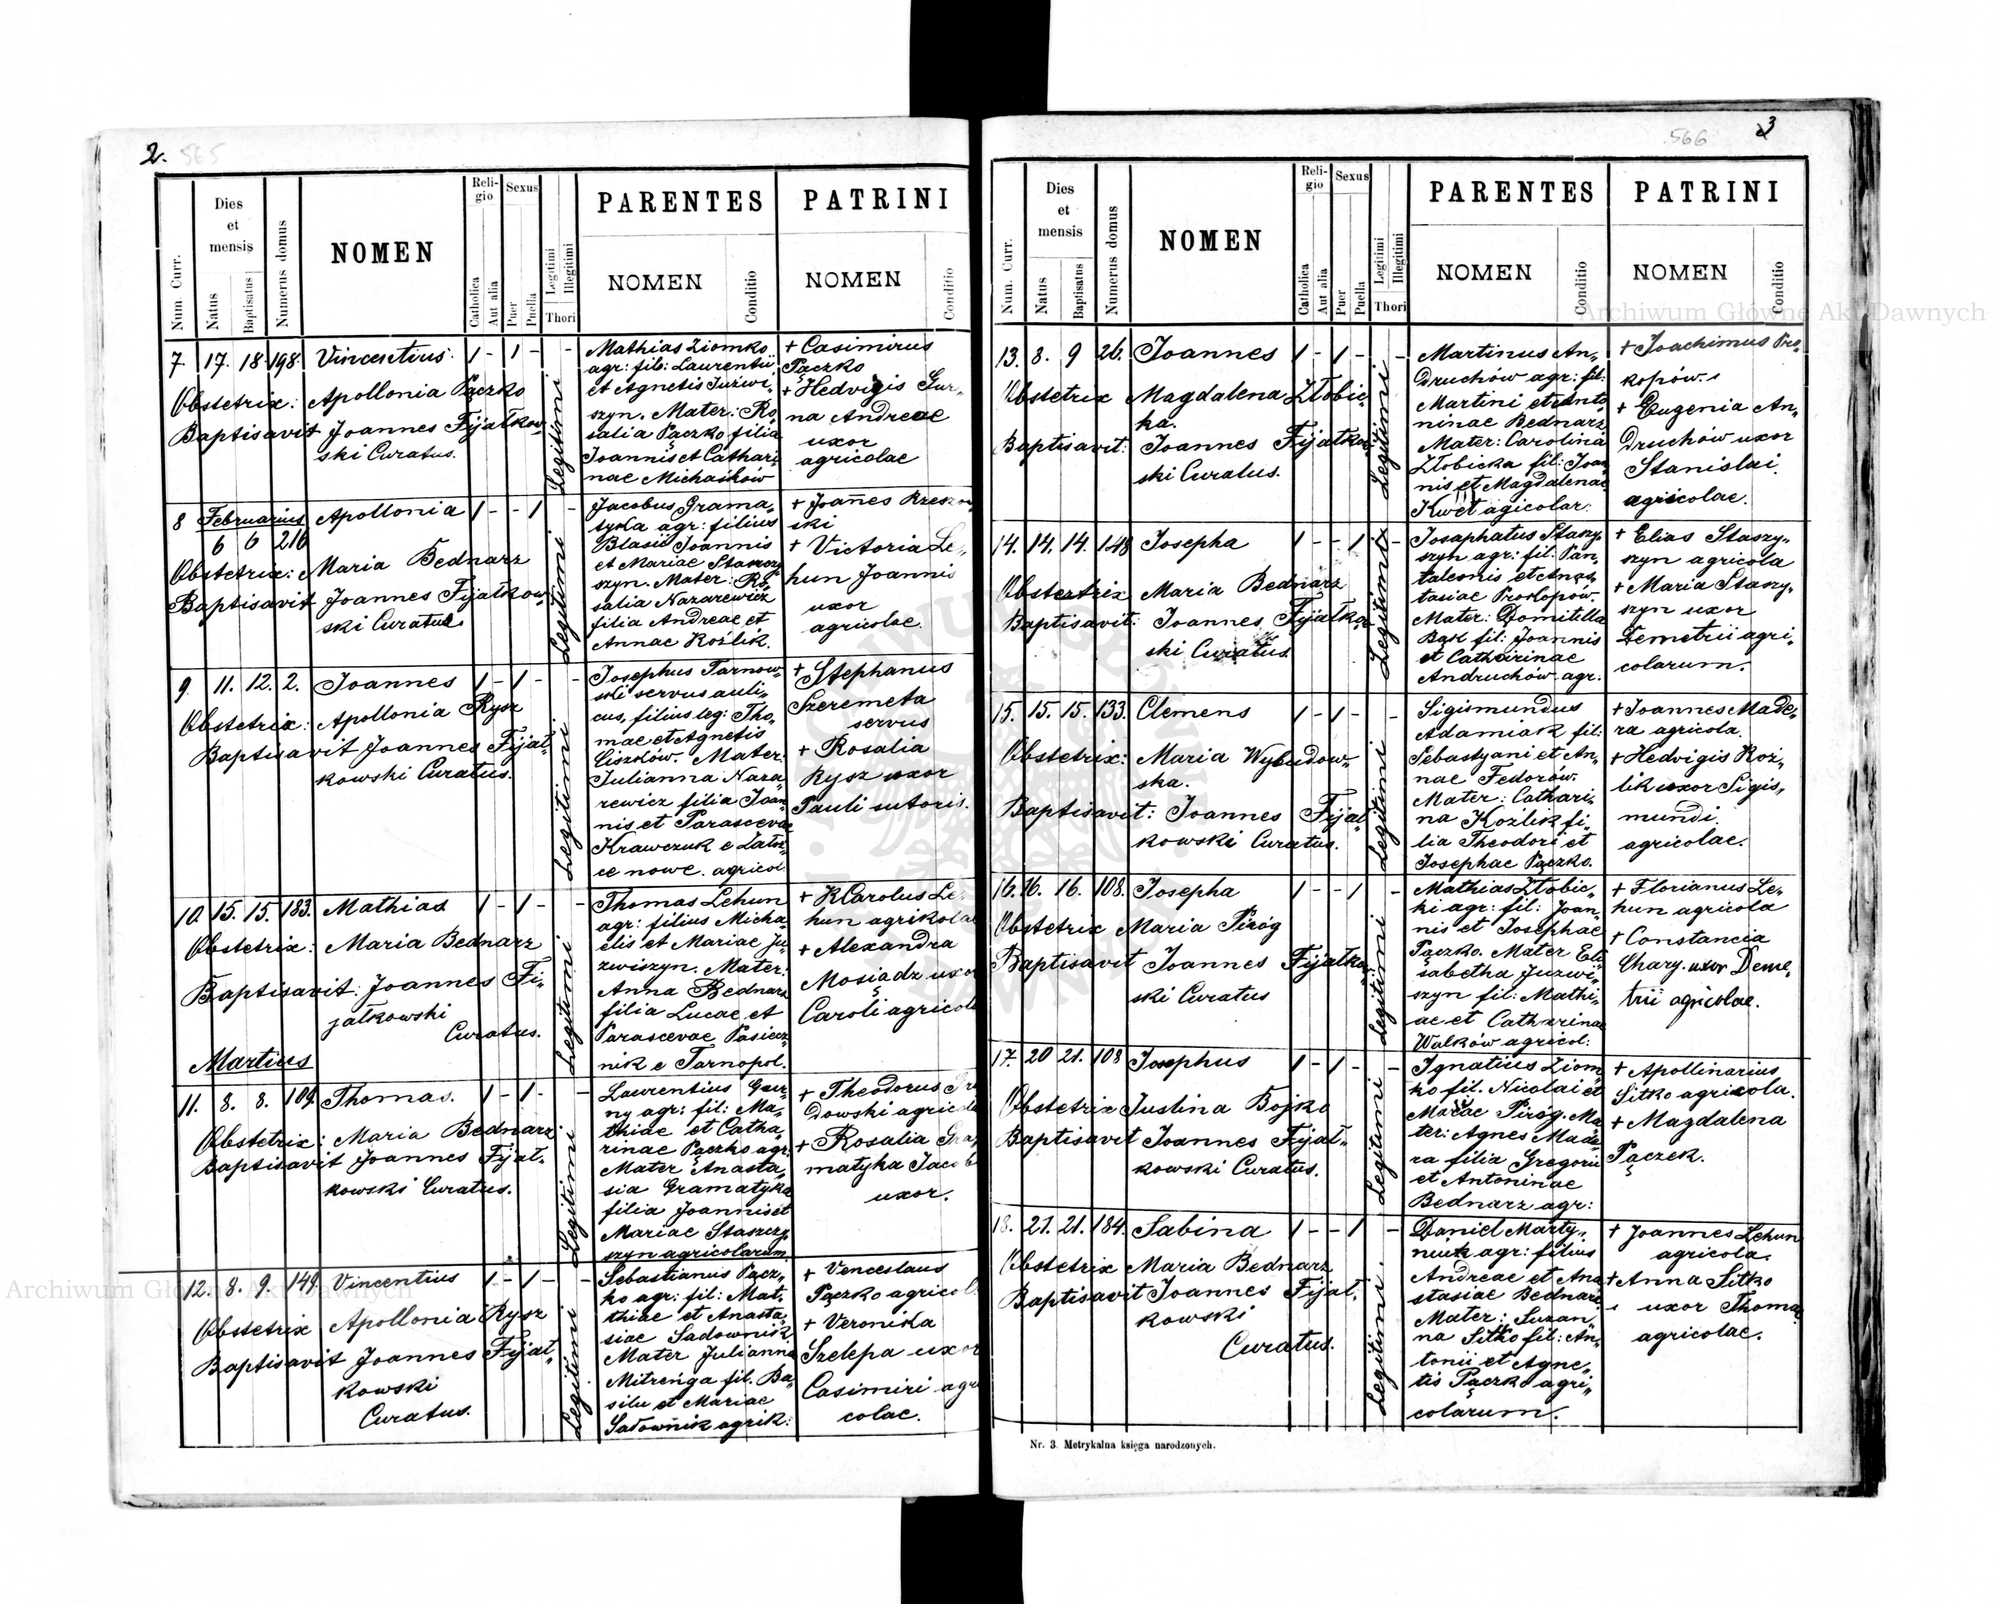 2. 565
Num. Curr.
Dies et mensis
Natus
Baptisatus
Numerus domus
NOMEN
Religio
Catholica
Aut alia
Sexus
Puer
Puella
Legitimi
Illegitimi
Thori
PARENTES
NOMEN
Conditio
PATRINI
NOMEN
Conditio
7. 17. 18. 198. Vincentius. 1 - 1 - -
Obstetrix: Apollonia Pączko
Baptisavit Joannes Fijałkow-
ski Curatus.
Legitimi
Mathias Ziomko
agr: fil: Laurentii
et Agnetis Juzwi-
szyn. Mater: Ro-
salia Pączko filia
Joannis et Cathari-
nae Michałków
+ Casimirus
Pączko
+ Hedvigis Gur-
na Andreae
uxor
agricolae
8 Februarius Apollonia 1 - - 1 -
6 6 216
Obstetrix: Maria Bednarz
Baptisavit Joannes Fijałkow-
ski Curatus
Legitimi
Jacobus Grama-
tyka agr: filius
Blasii Joannis
et Mariae Staszczy
szyn. Mater: Ro-
salia Nazarewicz
filia Andreae et
Annae Koźlik.
+ Joannes Rzeszow
ski
+ Victoria Le-
hun Joannis
uxor
agricolae.
9. 11. 12. 2. Joannes 1 - 1 - -
Obstetrix: Apollonia Rysz
Baptisavit Joannes Fijał-
kowski Curatus.
Legitimi
Josephus Tarnow-
ski servus auli-
cus, filius leg: Tho-
mae et Agnetis
Ciszłów. Mater:
Julianna Naza
rewicz filia Joan-
nis et Parascevae
Krawczuk e Zatos-
ce nowe. agricol.
+ Stephanus
Szeremeta
servus
+ Rosalia
Rysz uxor
Pauli sutoris.
10. 15. 15. 183. Mathias 1 - 1 - -
Obstetrix: Maria Bednarz
Baptisavit: Joannes Fi-
jałkowski
Curatus.
Legitimi
Thomas Lehun
agr: filius Micha-
elis et Mariae Ju-
zwiszyn. Mater:
Anna Bednarz
filia Lucae et
Parascevae Pasiecz-
nik e Tarnopol.
+ Karolus Le-
hun agrikolae
+ Alexandra
Mosiądz uxor
Caroli agricolae
Martius
11. 8. 8. 109. Thomas. 1 - 1 - -
Obstetrix: Maria Bednarz
Baptisavit Joannes Fijał-
kowski Curatus.
Legitimi
Laurentius Gur-
ny agr: fil: Ma-
thiae et Catha-
rinae Pączko agr:
Mater Anasta-
sia Gramatyka
filia Joannis et
Mariae Staszczy
szyn agricolarum.
+ Theodorus
dowski agricola
+ Rosalia Gra-
matyka Jacob
uxor.
12. 8. 9. 149. Vincentius 1 - 1 - -
Obstetrix Apollonia Rysz
Baptisavit Joannes Fijał-
kowski
Curatus.
Legitimi
Sebastianus Pącz-
ko agr: fil: Mat-
thiae et Anasta-
siae Sadownik.
Mater Julianna
Mitręnga fil. Ba-
silii et Mariae
Sadownik agrik:
+ Venceslaus
Pączko agricol.
+ Veronika
Szelepa uxor
Casimiri agri
colae.
566 3
Num. Curr.
Dies et mensis
Natus
Baptisatus
Numerus domus
NOMEN
Religio
Catholica
Aut alia
Sexus
Puer
Puella
Legitimi
Illegitimi
Thori
PARENTES
NOMEN
Conditio
PATRINI
NOMEN
Conditio
13. 8. 9 26. Joannes 1 - 1 - -
Obstetrix Magdalena Złobic-
ka.
Baptisavit: Joannes Fijałkow-
ski Curatus.
Legitimi
Martinus An-
druchów agr: fil:
Martini et Anto-
ninae Bednarz
Mater: Carolina
Złobicka fil: Joan-
nis et Magdalenae
Kwęt agicolar.
+ Joachimus Pro-
kopów.
+ Eugenia An-
druchów uxor
Stanislai.
agricolae.
14. 14. 14. 148 Josepha 1 - - 1 -
Obstetrix Maria Bednarz
Baptisavit: Joannes Fijałkow-
ski Curatus.
Legitimi
Josaphatus Staszy-
szyn agr: fil: Pan-
taleonis et Anas-
tasiae Prokopów.
Mater: Domitella
Bąk fil: Joannis
et Catharinae
Andruchów agr.
+ Elias Staszy-
szyn agricola
+ Maria Staszy-
szyn uxor
Demetrii agri-
colarum.
15. 15. 15. 133. Clemens 1 - 1 - -
Obstetrix: Maria Wybudow-
ska.
Baptisavit: Joannes Fijał-
kowski Curatus.
Legitimi
Sigismundus
Adamiak fil:
Sebastyani et An-
nae Fedorów.
Mater: Cathari-
na Koźlik fi-
lia Theodori et
Josephae Pączko.
+ Joannes Made-
ra agricola.
+ Hedvigis Koź-
lik uxor Sigis-
mundi.
agricolae.
16. 16. 16. 108. Josepha 1 - - 1 -
Obstetrix Maria Piróg
Baptisavit Joannes Fijałkow-
ski Curatus
Legitimi
Mathias Złobic-
ki agr: fil: Joan-
nis et Josephae
Pączko. Mater Eli
sabetha Juzwi-
szyn fil: Mathi-
ae et Catharinae
Walków agricol:
+ Florianus Le-
hun agricola
+ Constancia
Chary. uxor Deme-
trii agricolae.
17. 20 21. 108 Josephus 1 - 1 - -
Obstetrix Justina Bojko
Baptisavit Joannes Fijał-
kowski Curatus.
Legitimi
Ignatius Ziom-
ko fil. Nicolai et
Mariae Piróg. Ma-
ter: Agnes Made-
ra filia Gregorii
et Antoninae
Bednarz agr:
+ Apollinarius
Sitko agricola.
+ Magdalena
Pączek.
18. 21. 21. 184. Sabina 1 - - 1 -
Obstetrix Maria Bednarz
Baptisavit Joannes Fijał-
kowski
Curatus.
Legitimi.
Daniel Marty-
neuk agr: filius
Andreae et Ana
stasiae Bednarz.
Mater: Suzan-
na Sitko fil: An-
tonii et Agne-
tis Pączko agri-
colarum.
+ Joannes Lehun
agricola.
+ Anna Sitko
uxor Thomae
agricolae.
Nr. 3. Metrykalna księga narodzonych.
Archiwum Główne Akt Dawnych
Archiwum Główne Akt Dawnych